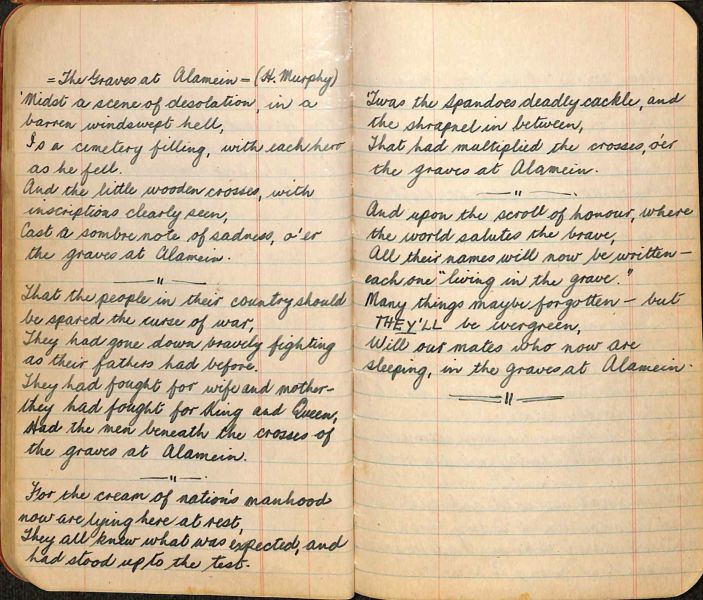 = The Graves at Alamein = (H. Murphy)
'Midst a scene of desolation, in a
barren windswept hell,
Is a cemetery filling, with each hero
as he fell.
And the little wooden crosses, with
inscriptions clearly seen,
Cast a sombre note of sadness, o'er
the graves at Alamein.
— " —
That the people in their country should
be spared the curse of war,
They had gone down bravely fighting
as their fathers had before.
They had fought for wife and mother -
they had fought for King and Queen,
Had the men beneath the crosses of
the graves at Alamein.
— " —
For the cream of nation's manhood
now are lying here at rest,
They all knew what was expected, and
had stood up to the test.
'Twas the Spandoes deadly cackle, and
the shrapnel in between,
That had multiplied the crosses, o'er
the graves at Alamein.
— " —
And upon the scroll of honour, where
the world salutes the brave,
All their names will now be written —
each one "living in the grave."
Many things maybe forgotten — but
THEY'LL be evergreen,
Will our mates who now are
sleeping, in the graves at Alamein.
— " —